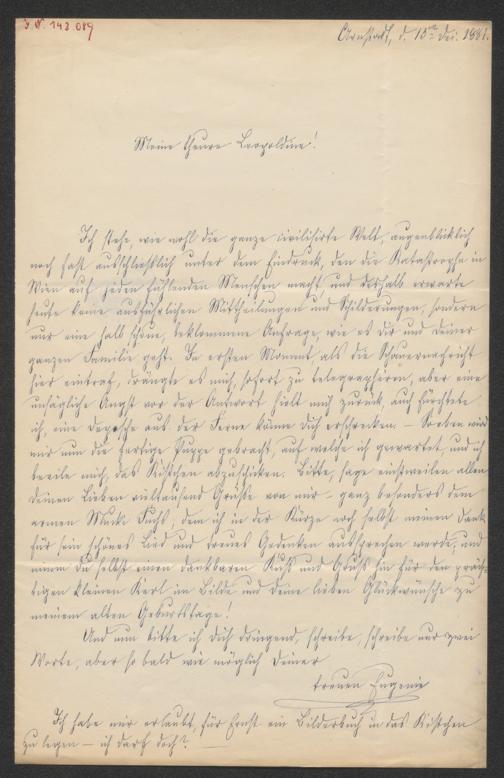 I.N. 143.089
Arnstadt, d. 13ten Dez. 1881.
Meine theure Leopoldine!
Ich stehe, wie wohl die ganze civilisirte Welt, augenblicklich
noch fast ausschließlich unter dem Eindruck, den die Katastrophe in
Wien auf jeden fühlenden Menschen macht und deshalb erwarte
heute keine ausführlichen Mittheilungen und Schilderungen, sondern
nur eine halb scheue, beklommene Anfrage, wie es dir und deiner
ganzen Familie geht. Im ersten Moment, als die Schauernachricht
hier eintraf, drängte es mich, sofort zu telegraphiren, aber eine
unsägliche Angst vor der Antwort hielt mich zurück, auch fürchtete
ich, eine Depesche aus der Ferne könne dich erschrecken. – Soeben wird
mir nun die fertige Puppe gebracht, auf welche ich gewartet, und ich
beeile mich, das Kistchen abzuschicken. Bitte, sage einstweilen allen
deinen Lieben vieltausend Grüße von mir – ganz besonders dem
armen Fuchs, dem ich in der Kürze noch selbst meinen Dank
für sein schönes Lied und treues Gedenken aussprechen werde, und
nimm du selbst einen dankbaren Kuß und Gruß hin für den präch-
tigen kleinen Kerl im Bilde und deine lieben Glückwünsche zu
meinem alten Geburtstage!
Und nun bitte ich dich dringend, schreibe, schreibe nur zwei
Worte, aber so bald wie möglich deiner
treuen Eugenie
Ich habe mir erlaubt, für Ernst ein Bilderbuch in das Kistchen
zu legen – ich darf doch? –